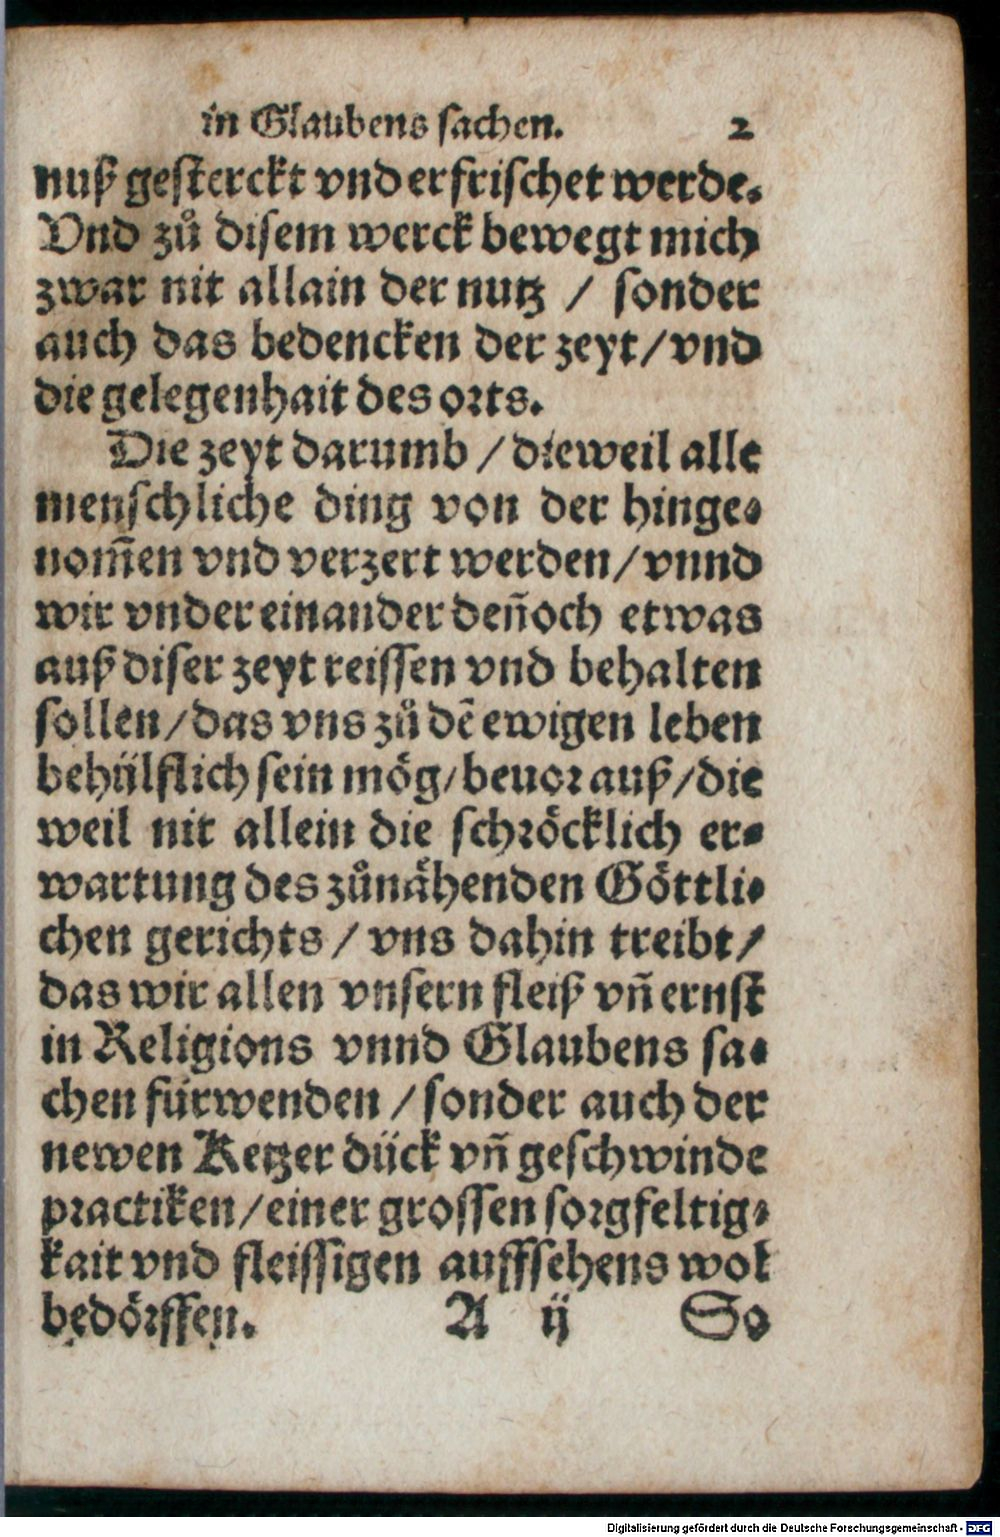 in Glaubens sachen. 2
nuß gesterckt vnd erfrischet werde.
Vnd zů disem werck bewegt mich
zwar nit allain der nutz / sonder
auch das bedencken der zeyt / vnd
die gelegenhait des orts.
Die zeyt darumb / dieweil alle
menschliche ding von der hinge⸗
nom̃en vnd verzert werden / vnnd
wir vnder einander den̄och etwas
auß diser zeyt reissen vnd behalten
sollen / das vns zů dē ewigen leben
behülflich sein mög / beuor auß / die
weil nit allein die schröcklich er⸗
wartung des zůnähenden Göttli⸗
chen gerichts / vns dahin treibt /
das wir allen vnsern fleiß vn̄ ernst
in Religions vnnd Glaubens sa⸗
chen fürwenden / sonder auch der
newen Ketzer dück vn̄ geschwinde
practiken / einer grossen sorgfeltig⸗
kait vnd fleissigen auffsehens wol
bedörffen. A ij So
Digitalisierung gefördert durch die Deutsche Forschungsgemeinschaft - DFG